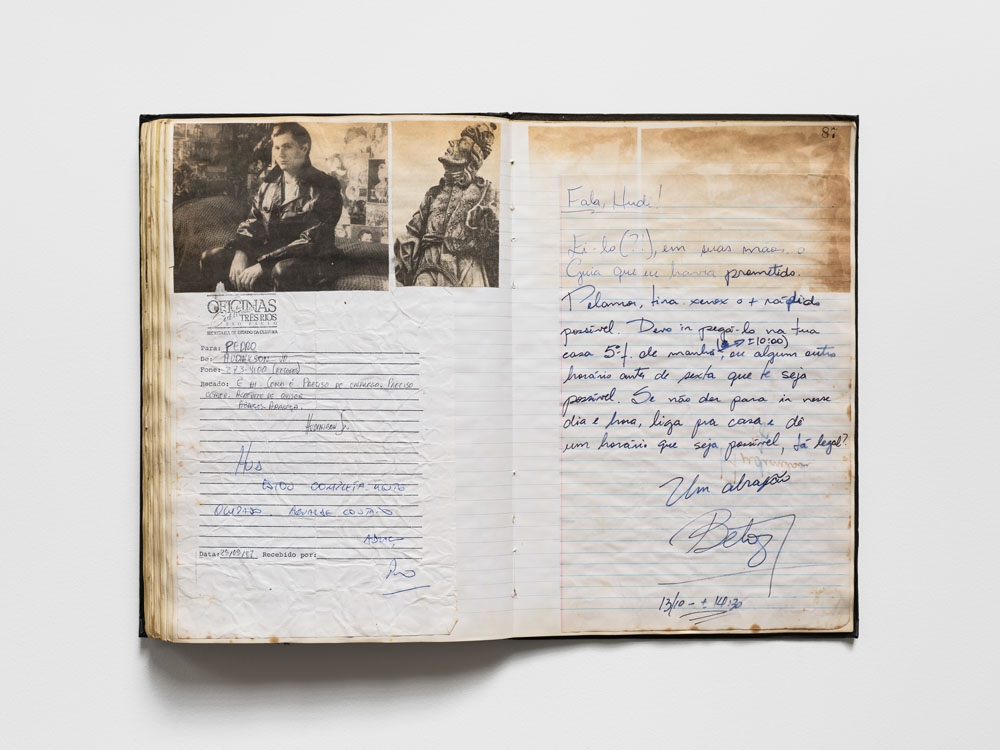 OFICINAS
TRÊS RIOS
SÃO PAULO
SECRETARIA DE ESTADO DA CULTURA
Para: PEDRO
De: HUDINILSON JR
Fone: 273-4100
Recado: E AÍ COMO É. PRECISO DE PRECISO
HUDINILSON Jr.
Hud
ESTOU COMPLETAMENTE
AGUARDE CONTATO
Data: Recebido por:
87
Fala, Hudi!
Ei-lo (?!), em suas mãos o
Guia que eu havia prometido.
Pelamor, tira xerox o + rápido
possível. Devo ir pegá-lo na tua
(±10:00)
casa 5ª f. de manhã, ou algum outro
horário antes de sexta que te seja
possível. Se não der para ir nesse
dia e hora, liga pra casa e dê
um horário que seja possível, tá legal?
Um abração
Beto
13/10 - ± 14:30